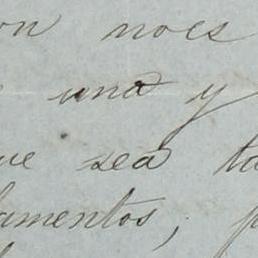 on noes
una y
ue sea ta
lamentos, p